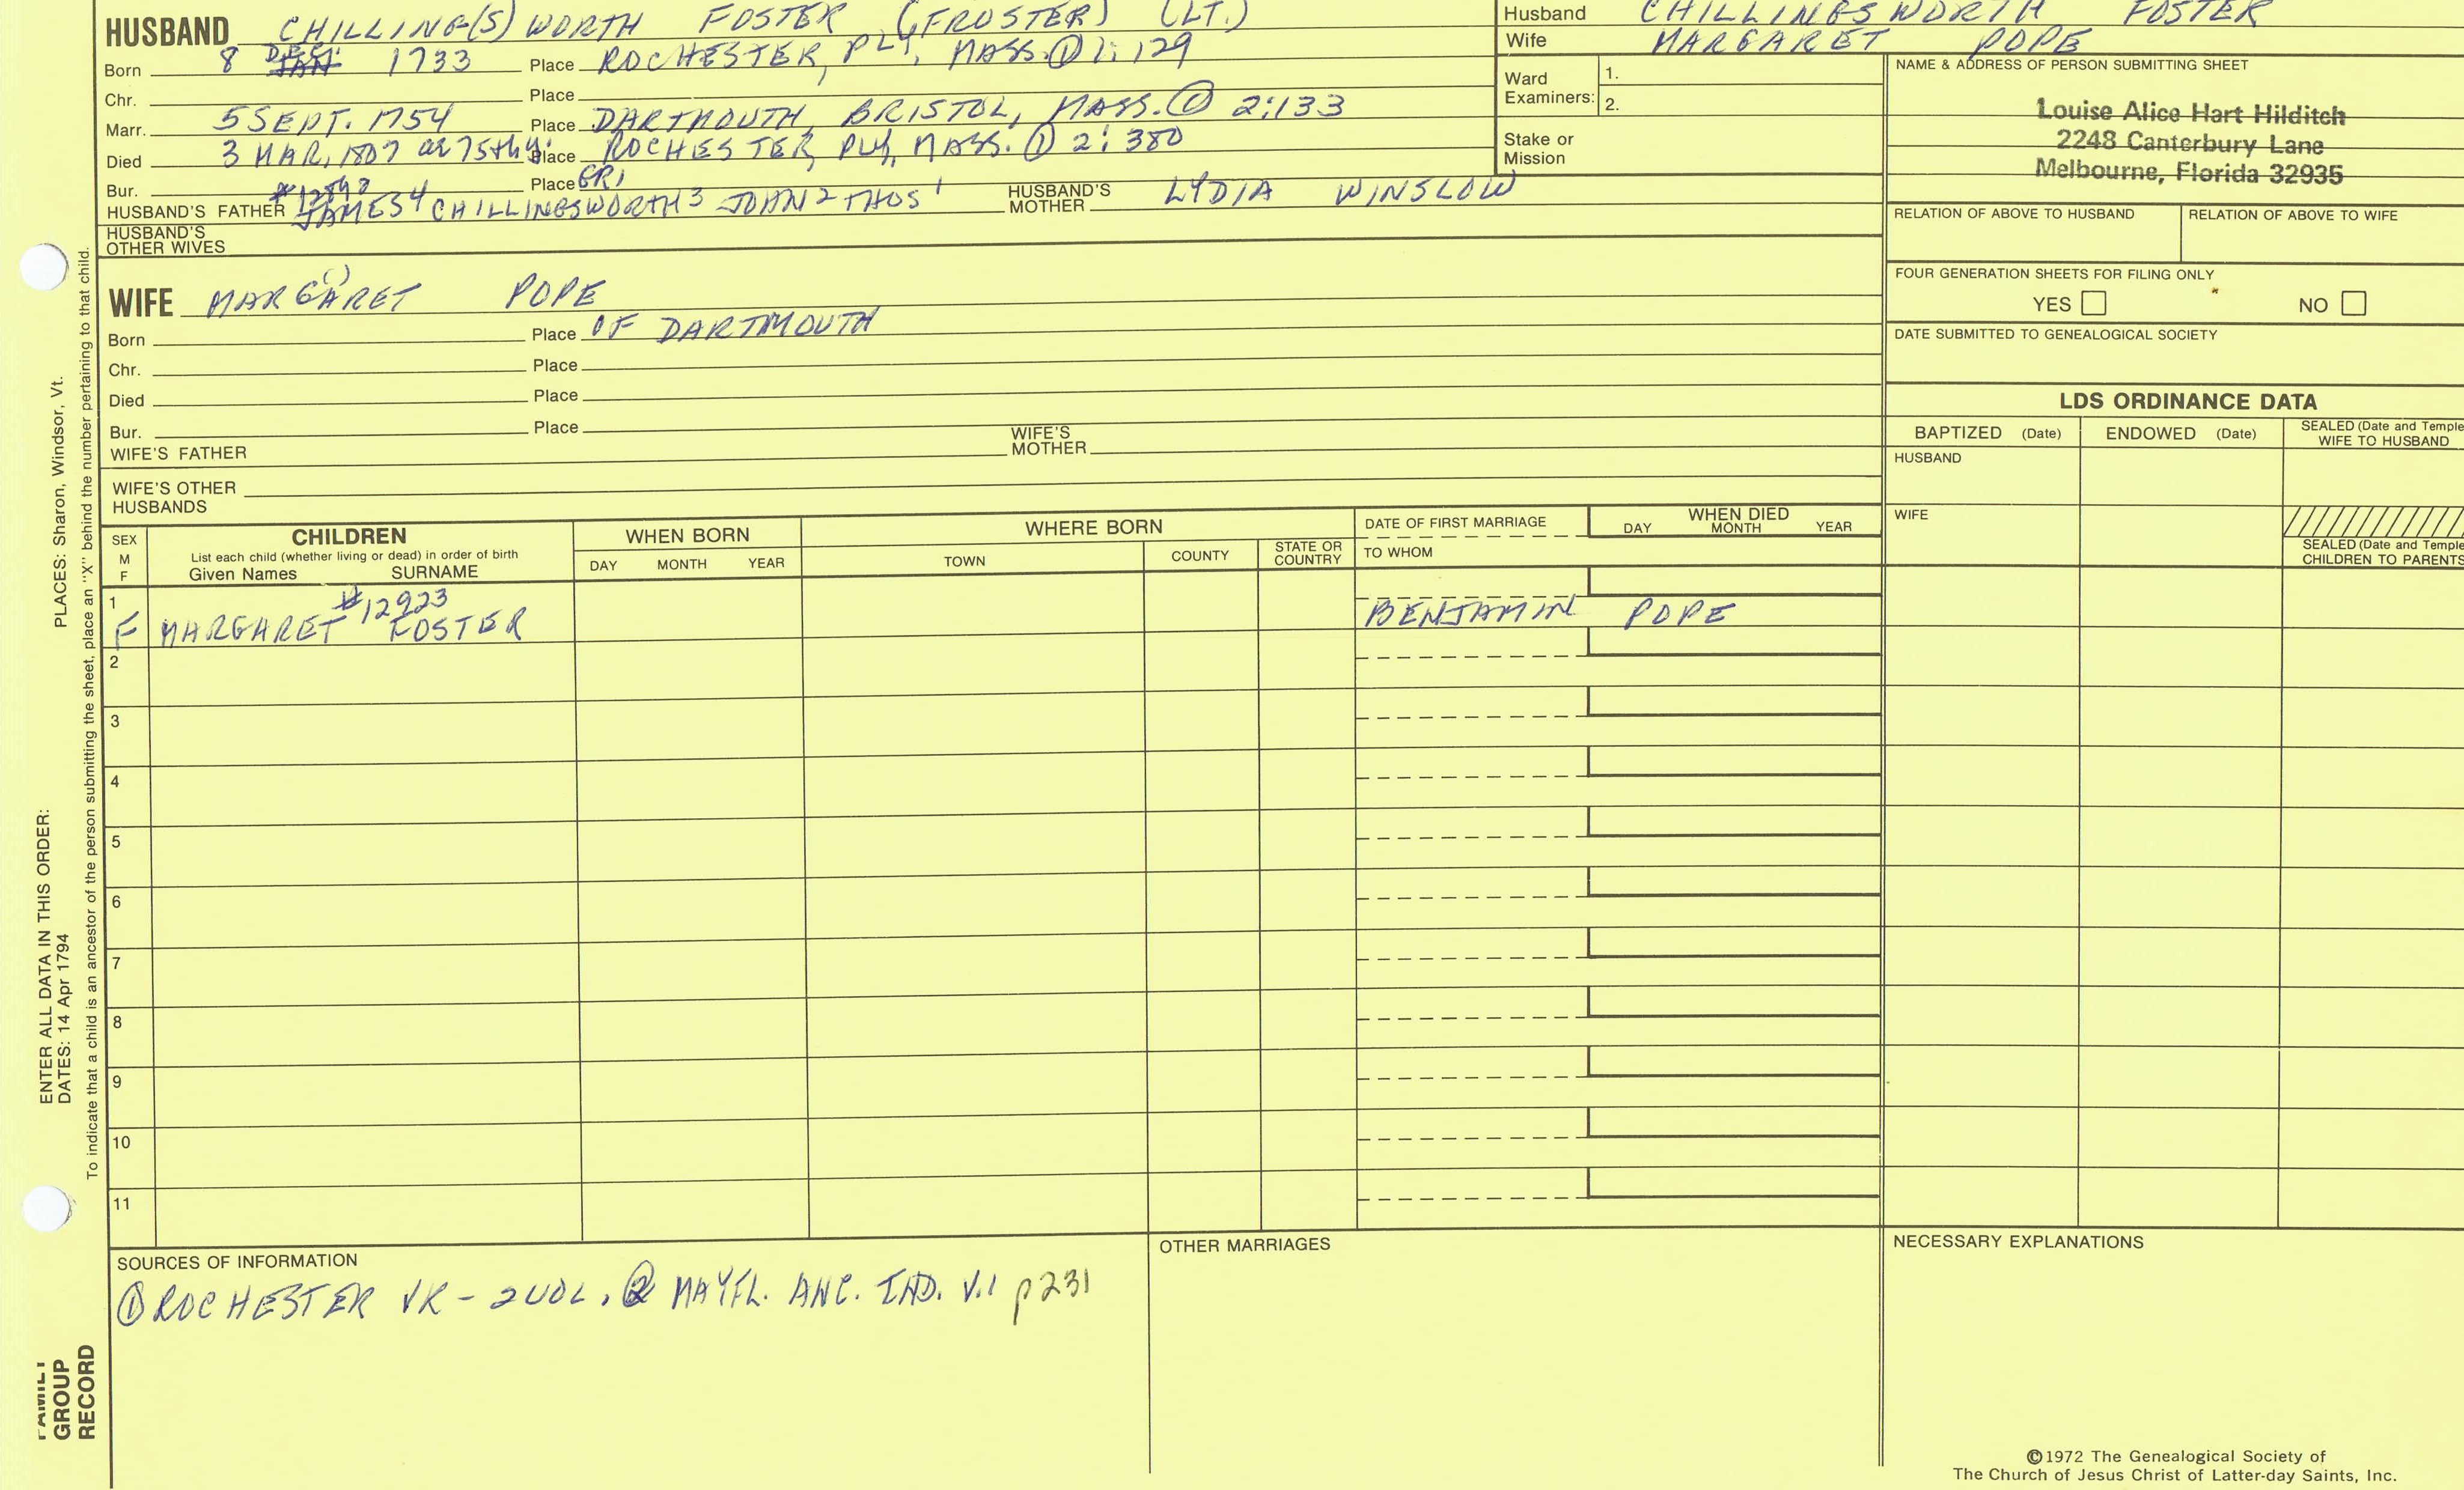 HUSBAND CHILLING(S)WORTH FOSTER (FROSTER) (LT.)
Born 8 DEC. JAN 1733 Place ROCHESTER, PLY, MASS. ① 1:129
Chr. Place
Marr. 5 SEPT. 1754 Place DARTMOUTH, BRISTOL, MASS. ② 2:133
Died 3 MAR, 1807 ae 75th y. Place ROCHESTER, PLY, MASS. ① 2:380
Bur. Place GR1
HUSBAND'S FATHER JAMES4 CHILLINGSWORTH3 JOHN2 THOS1 HUSBAND'S MOTHER LYDIA WINSLOW
HUSBAND'S OTHER WIVES
Husband CHILLINGSWORTH FOSTER
Wife MARGARET POPE
Ward Examiners: 1.
2.
Stake or Mission
NAME & ADDRESS OF PERSON SUBMITTING SHEET
Louise Alice Hart Hilditch
2248 Canterbury Lane
Melbourne, Florida 32935
RELATION OF ABOVE TO HUSBAND RELATION OF ABOVE TO WIFE
FOUR GENERATION SHEETS FOR FILING ONLY
YES NO
DATE SUBMITTED TO GENEALOGICAL SOCIETY
WIFE MARGARET POPE
Born Place OF DARTMOUTH
Chr. Place
Died Place
Bur. Place
WIFE'S FATHER WIFE'S MOTHER
WIFE'S OTHER HUSBANDS
LDS ORDINANCE DATA
BAPTIZED (Date) ENDOWED (Date) SEALED (Date and Temple
WIFE TO HUSBAND
HUSBAND
WIFE
SEALED (Date and Temple
CHILDREN TO PARENTS
SEX M F
CHILDREN
List each child (whether living or dead) in order of birth
Given Names SURNAME
WHEN BORN
DAY MONTH YEAR
WHERE BORN
TOWN COUNTY STATE OR COUNTRY
DATE OF FIRST MARRIAGE
TO WHOM
WHEN DIED
DAY MONTH YEAR
1 #12923
F MARGARET FOSTER BENJAMIN POPE
2
3
4
5
6
7
8
9
10
11
SOURCES OF INFORMATION
① ROCHESTER VR - 2 VOL. ② MAYFL. ANC. IND. V.1 p231
OTHER MARRIAGES
NECESSARY EXPLANATIONS
©1972 The Genealogical Society of
The Church of Jesus Christ of Latter-day Saints, Inc.
ENTER ALL DATA IN THIS ORDER:
DATES: 14 Apr 1794 PLACES: Sharon, Windsor, Vt.
To indicate that a child is an ancestor of the person submitting the sheet, place an "X" behind the number pertaining to that child.
FAMILY
GROUP
RECORD